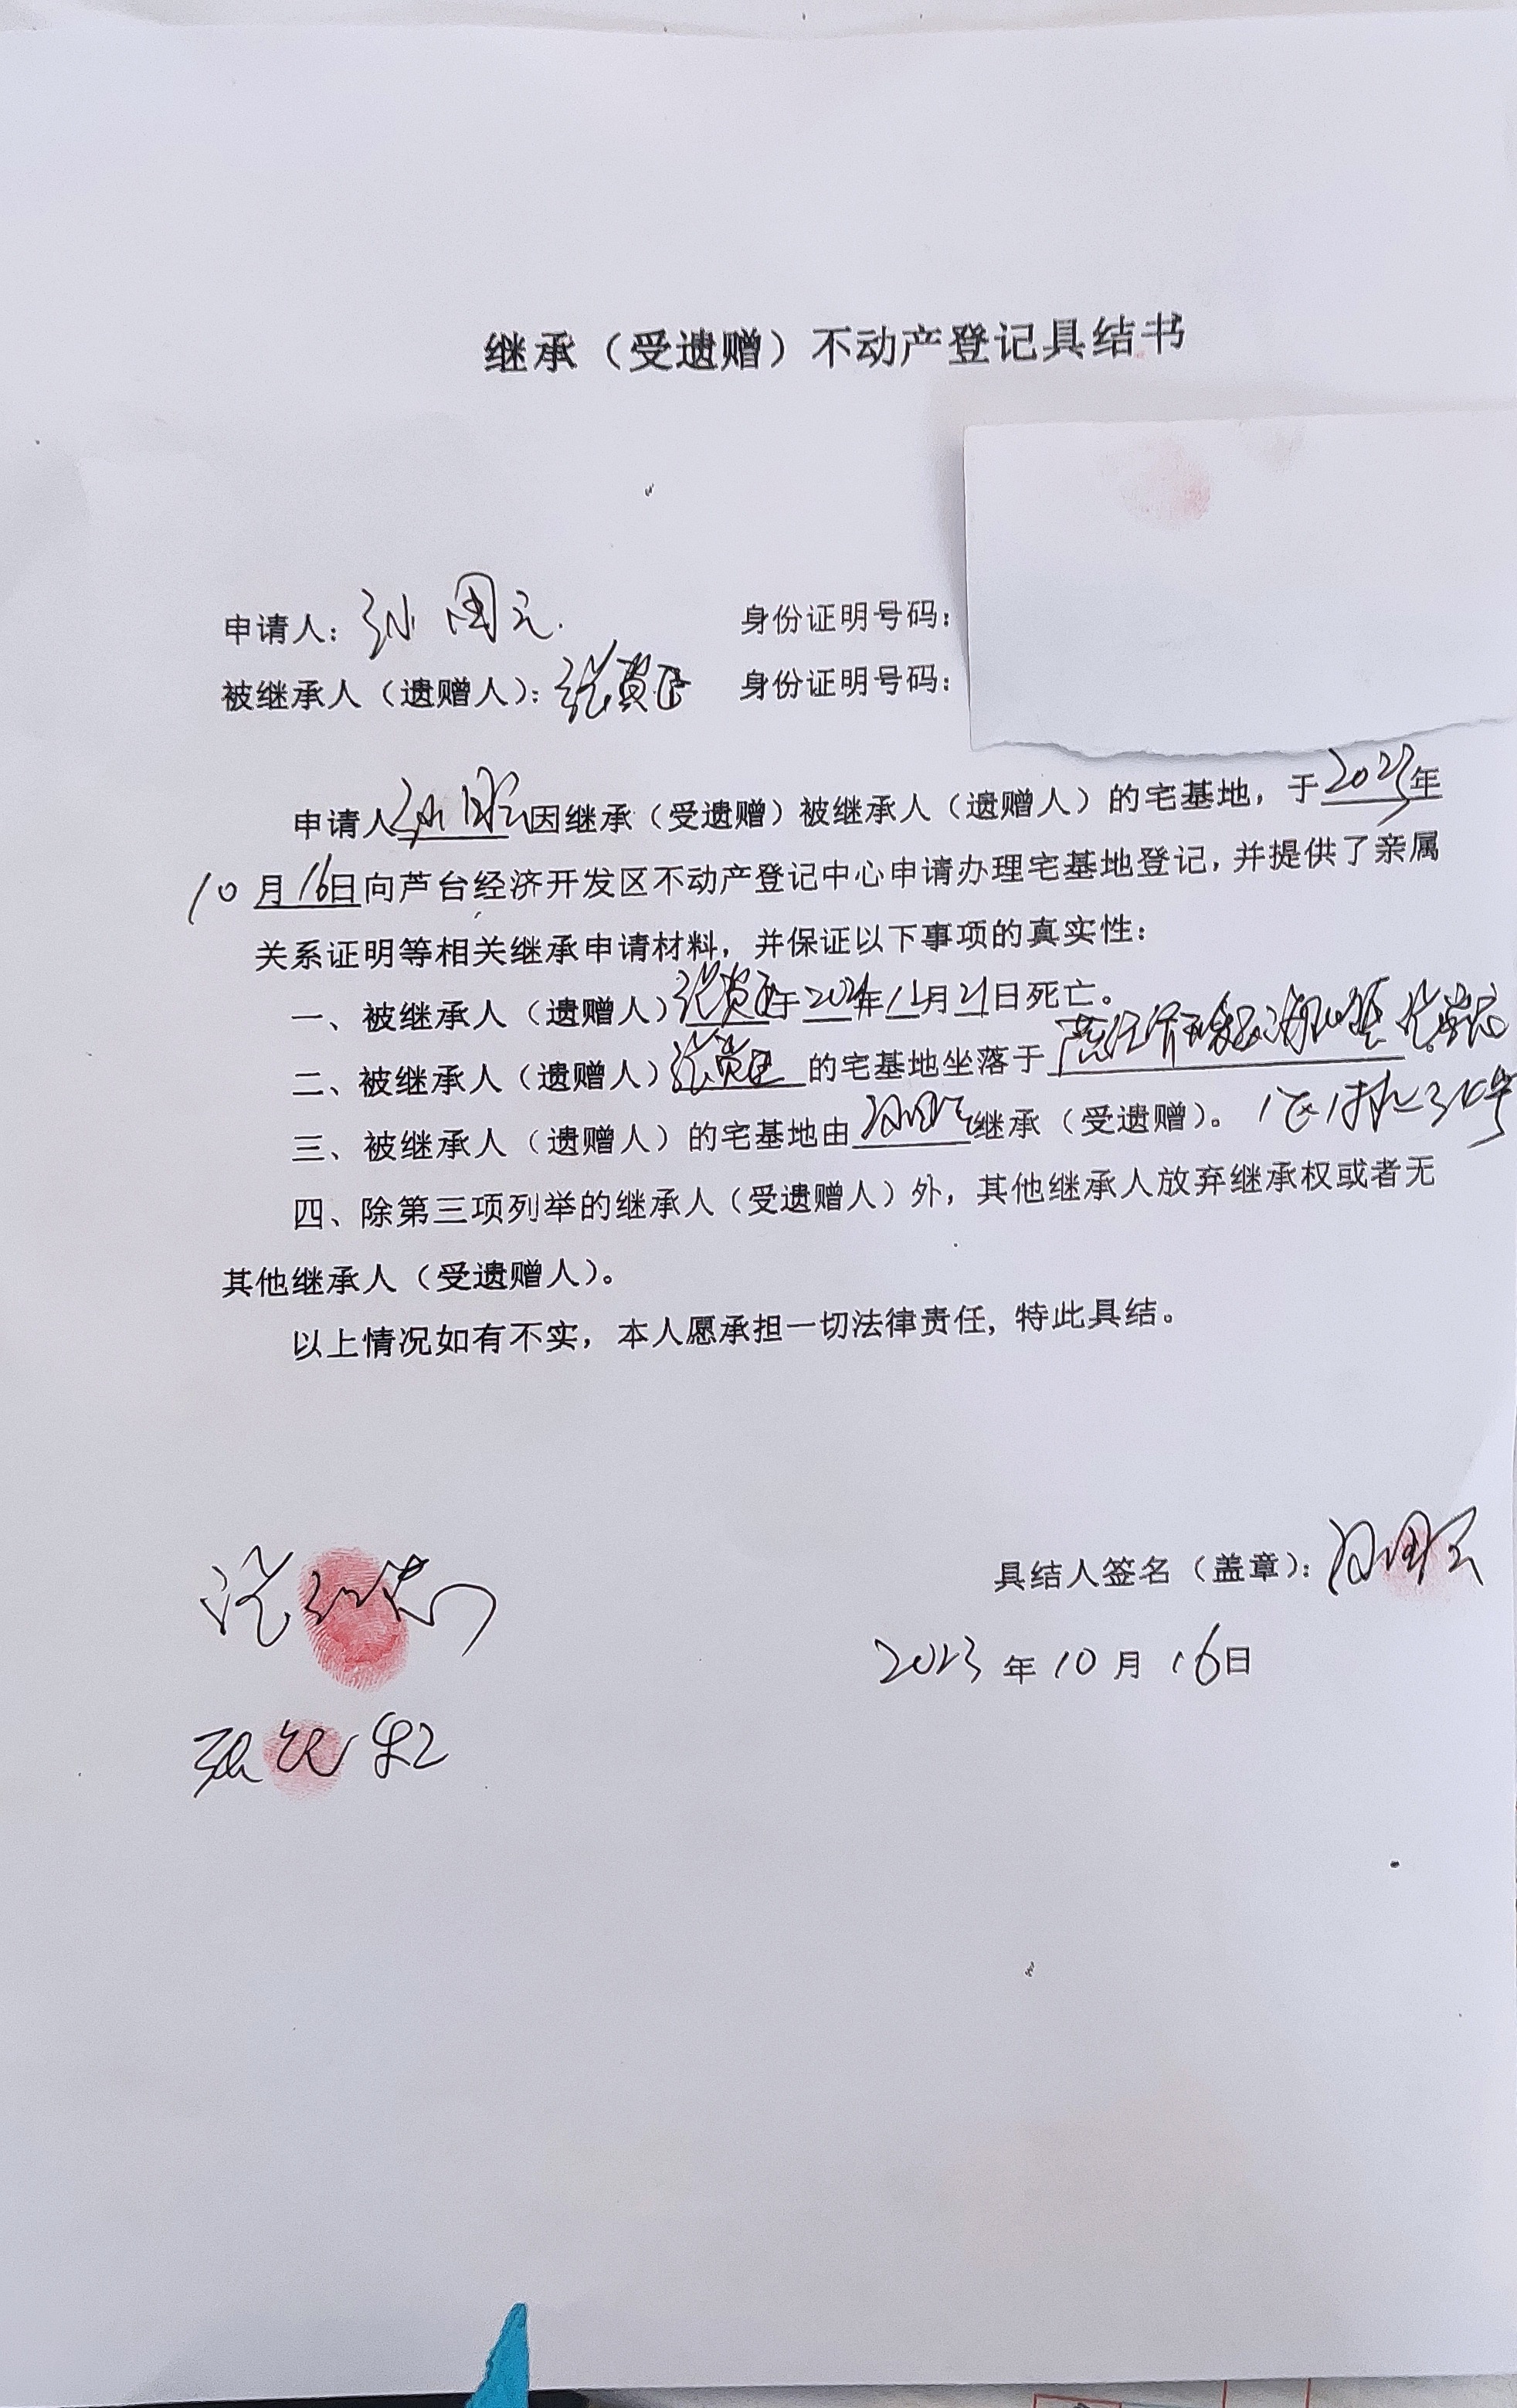 继承（受遗赠）不动产登记具结书
申请人： 身份证明号码：
被继承人（遗赠人）：张 身份证明号码：
申请人 因继承（受遗赠）被继承人（遗赠人）的宅基地，于2023年
10月16日向芦台经济开发区不动产登记中心申请办理宅基地登记，并提供了亲属
关系证明等相关继承申请材料，并保证以下事项的真实性：
一、被继承人（遗赠人）张 于 年 月21日死亡。
二、被继承人（遗赠人）张 的宅基地坐落于
三、被继承人（遗赠人）的宅基地由 继承（受遗赠）。
四、除第三项列举的继承人（受遗赠人）外，其他继承人放弃继承权或者无
其他继承人（受遗赠人）。
以上情况如有不实，本人愿承担一切法律责任，特此具结。
具结人签名（盖章）：
2023年10月16日